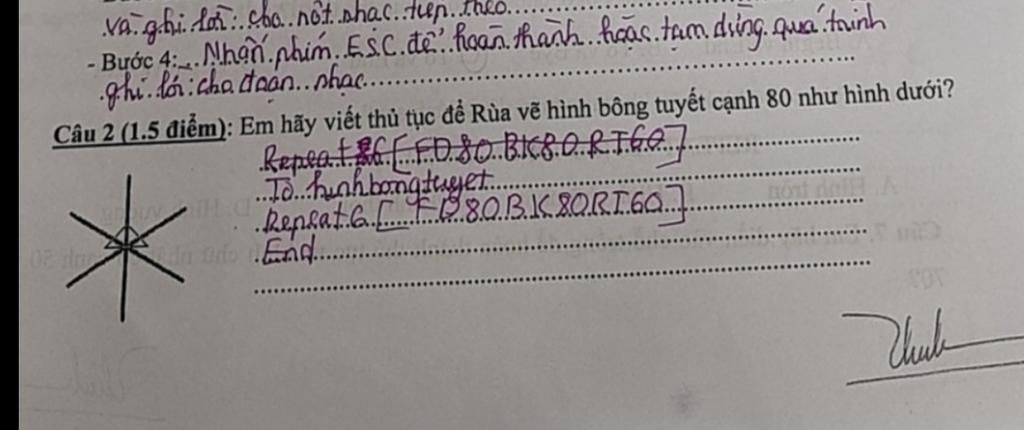 và ghi lời cho nốt nhạc tiếp theo
- Bước 4: Nhấn phím ESC để hoàn thành hoặc tạm dừng quá trình
ghi lời cho đoạn nhạc
Câu 2 (1.5 điểm): Em hãy viết thủ tục để Rùa vẽ hình bông tuyết cạnh 80 như hình dưới?
Repeat 6 [FD 80 BK 80 RT 60]
To hinhbongtuyet
Repeat 6 [FD 80 BK 80 RT 60]
End